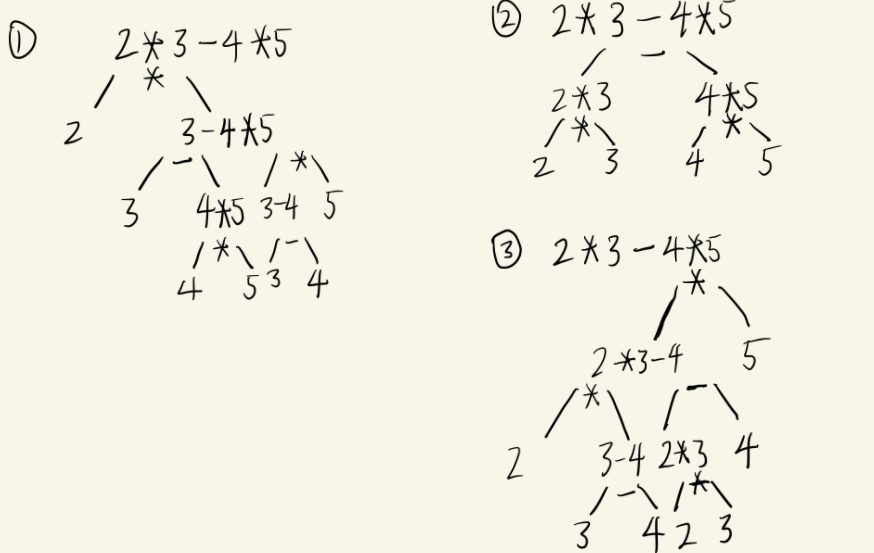 ① 2*3-4*5
*
2 3-4*5
- *
3 4*5 3-4 5
* -
4 5 3 4
② 2*3-4*5
-
2*3 4*5
* *
2 3 4 5
③ 2*3-4*5
*
2*3-4 5
* -
2 3-4 2*3 4
- *
3 4 2 3